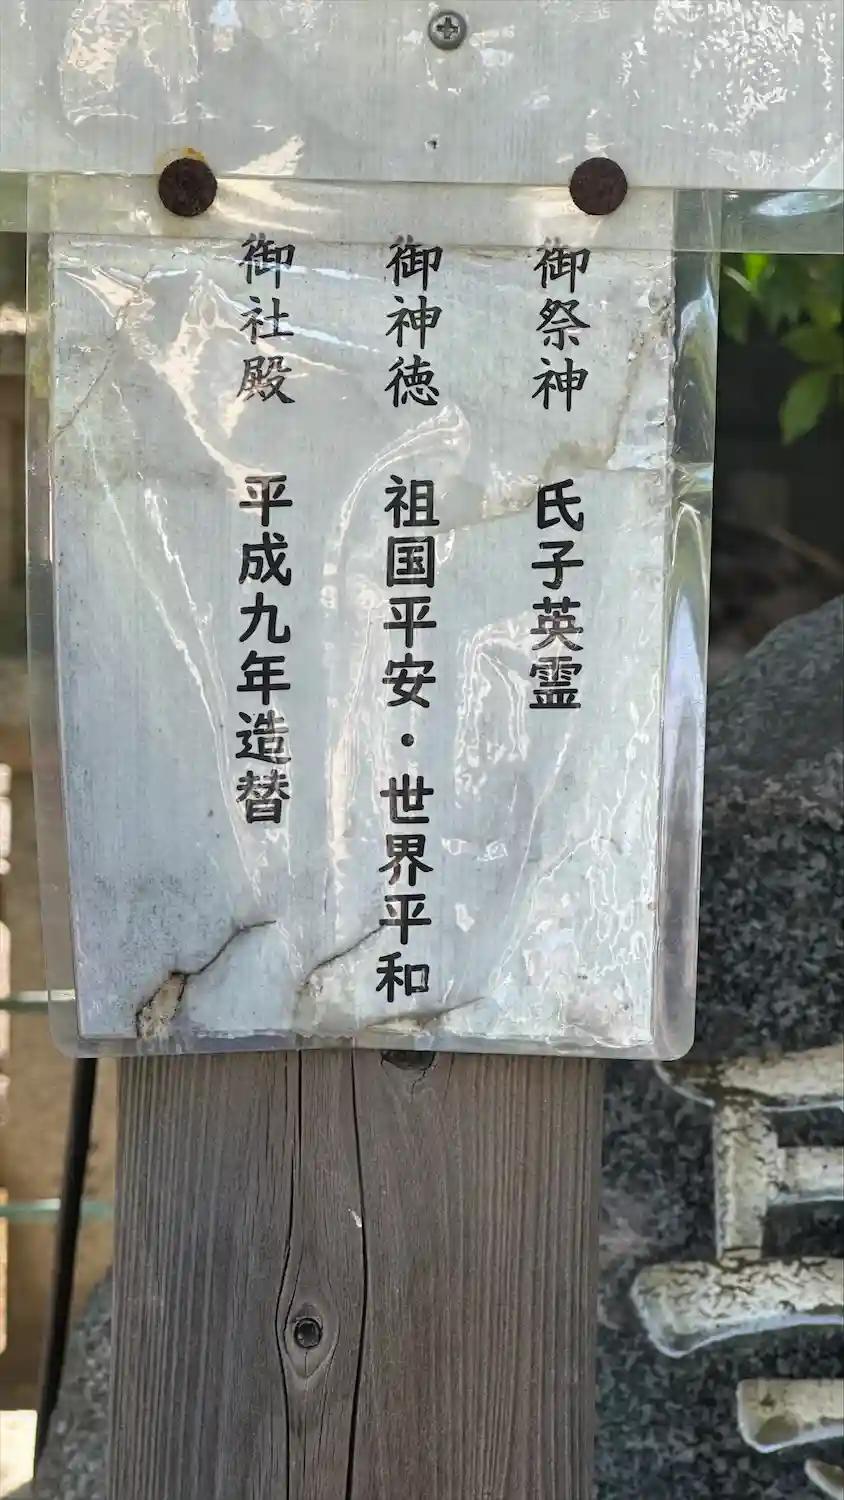 御祭神 氏子英霊
御神徳 祖国平安・世界平和
御社殿 平成九年造替